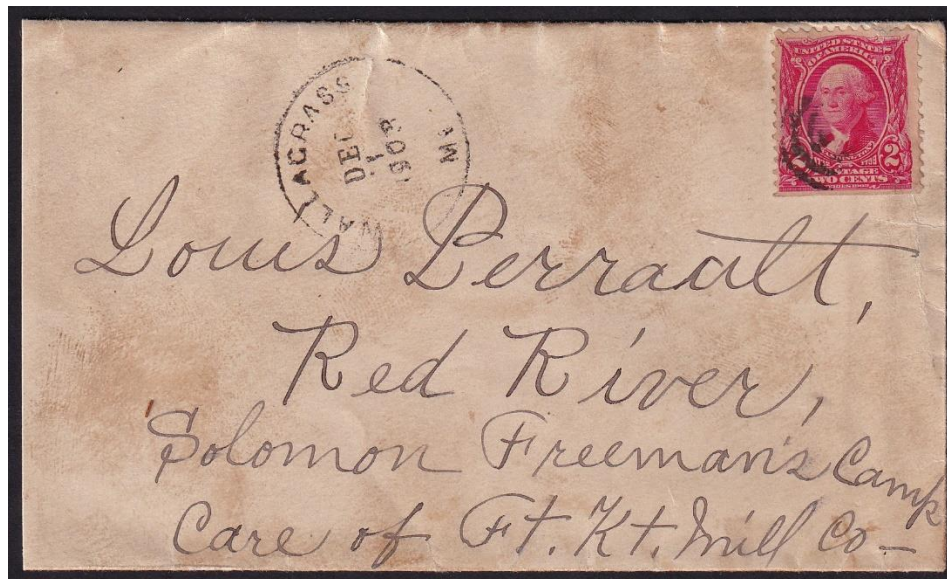 WALLAGRASS
DEC
1
1903
UNITED STATES
OF AMERICA
2 2
POSTAGE
TWO CENTS
Louis Perrault,
Red River,
Solomon Freeman's Camp
Care of Ft. Kt. Mill Co—